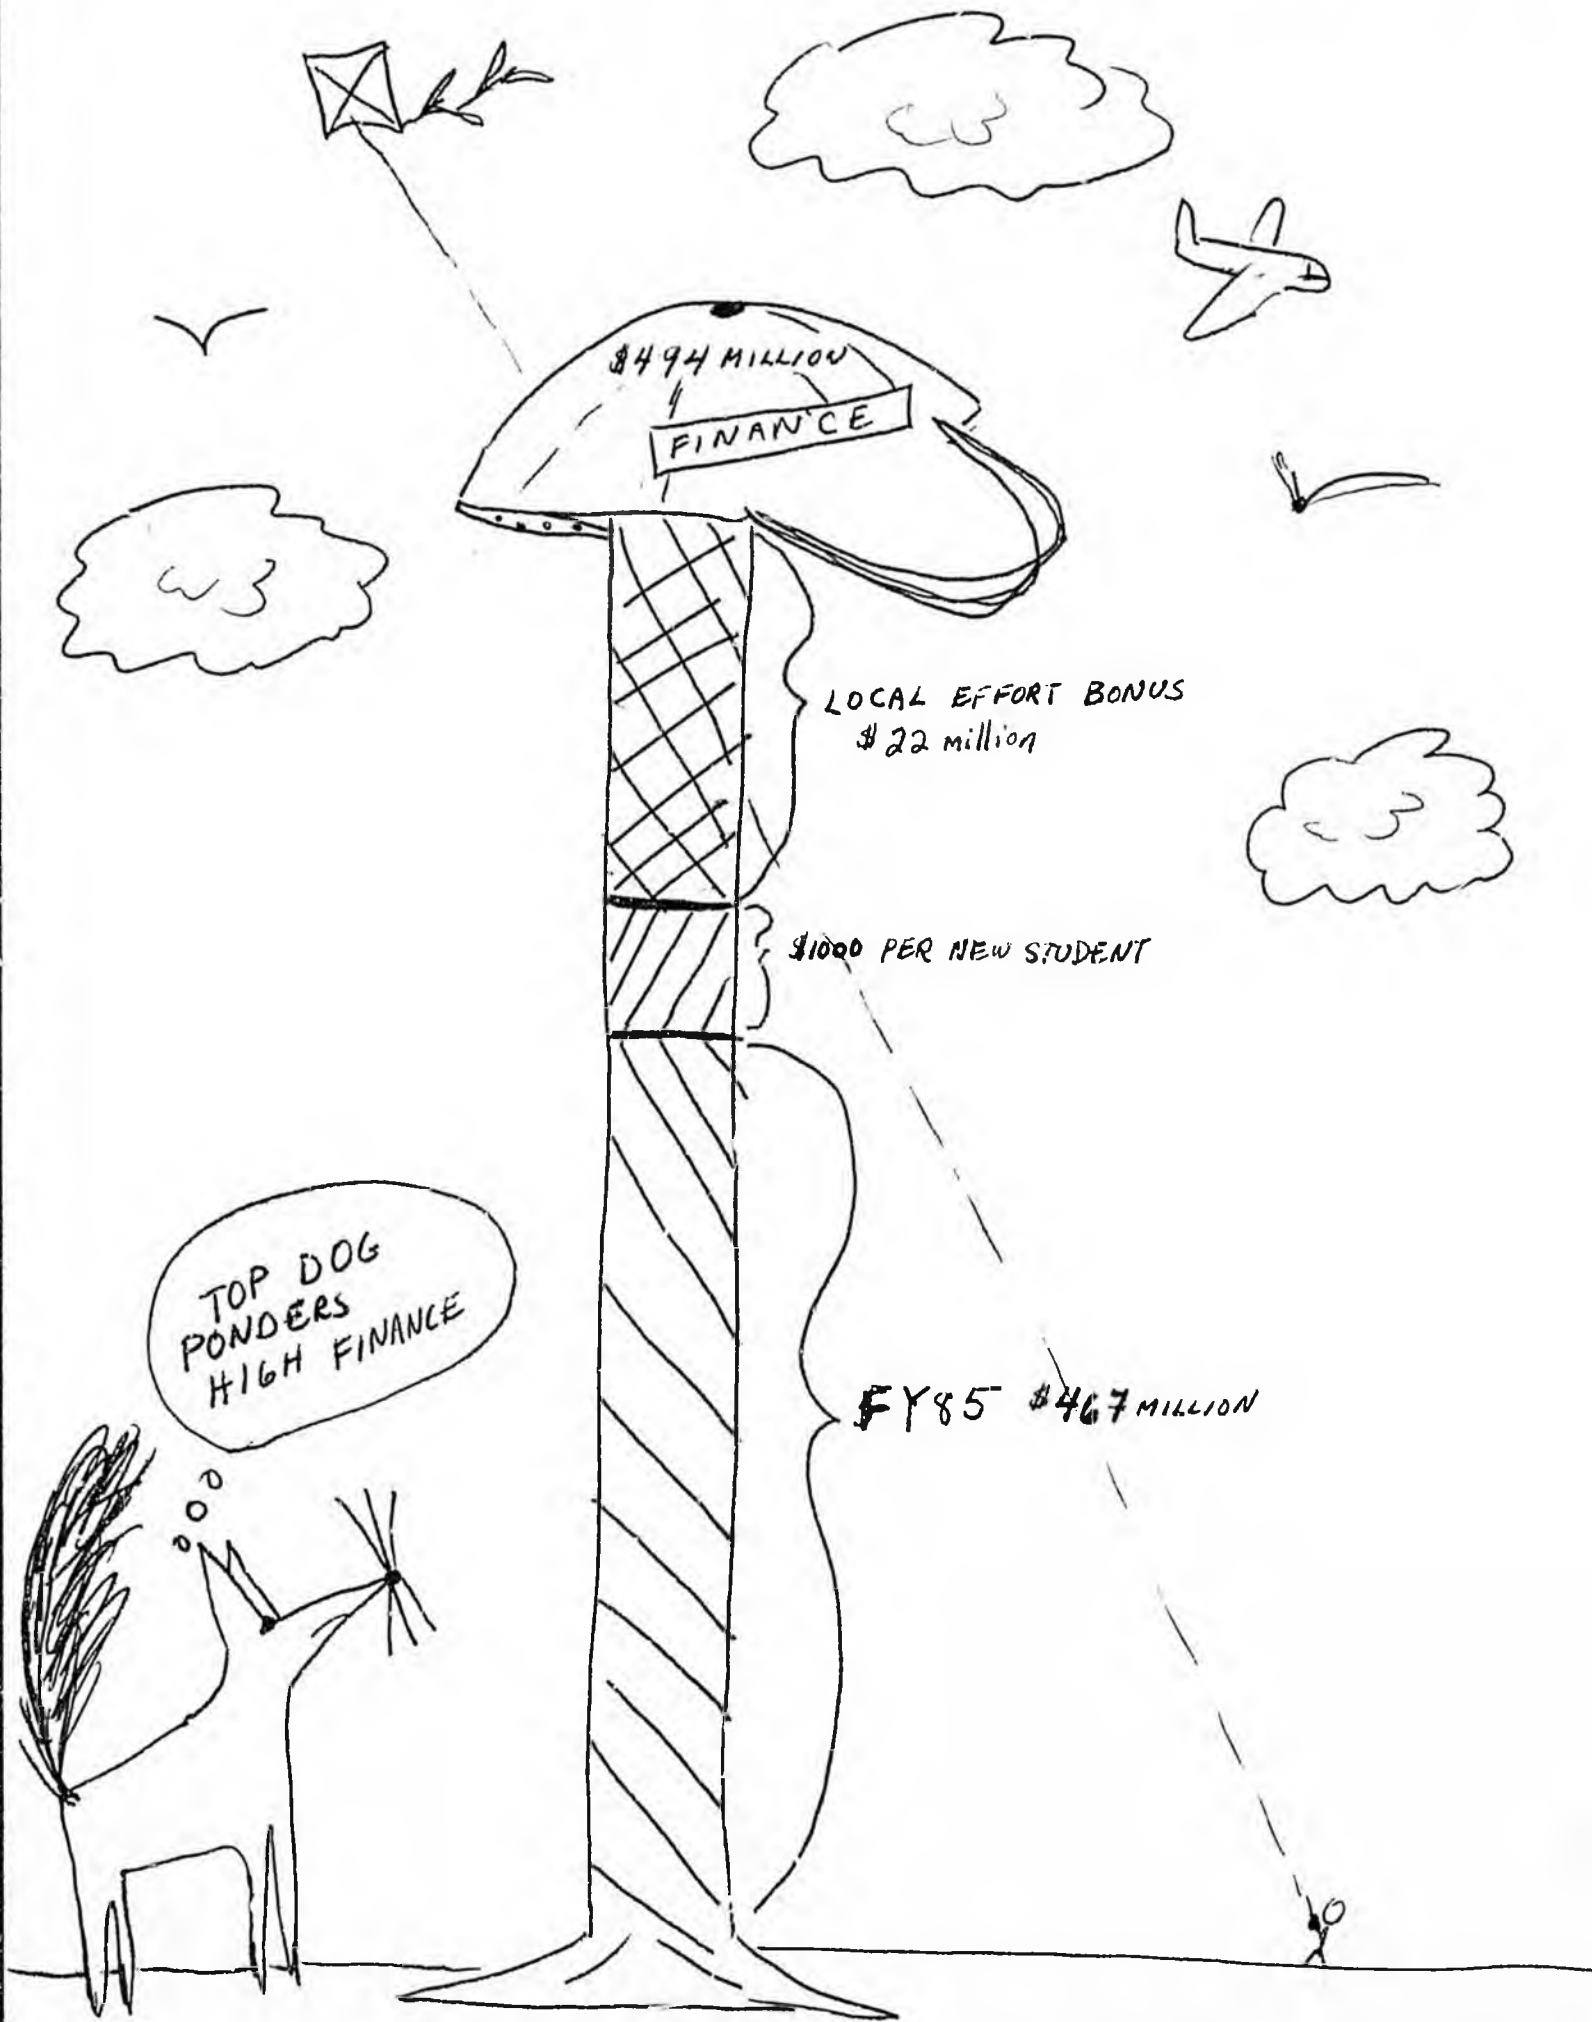 $494 MILLION
FINANCE
LOCAL EFFORT BONUS
$22 million
$1000 PER NEW STUDENT
TOP DOG
PONDERS
HIGH FINANCE
FY85 $467 MILLION